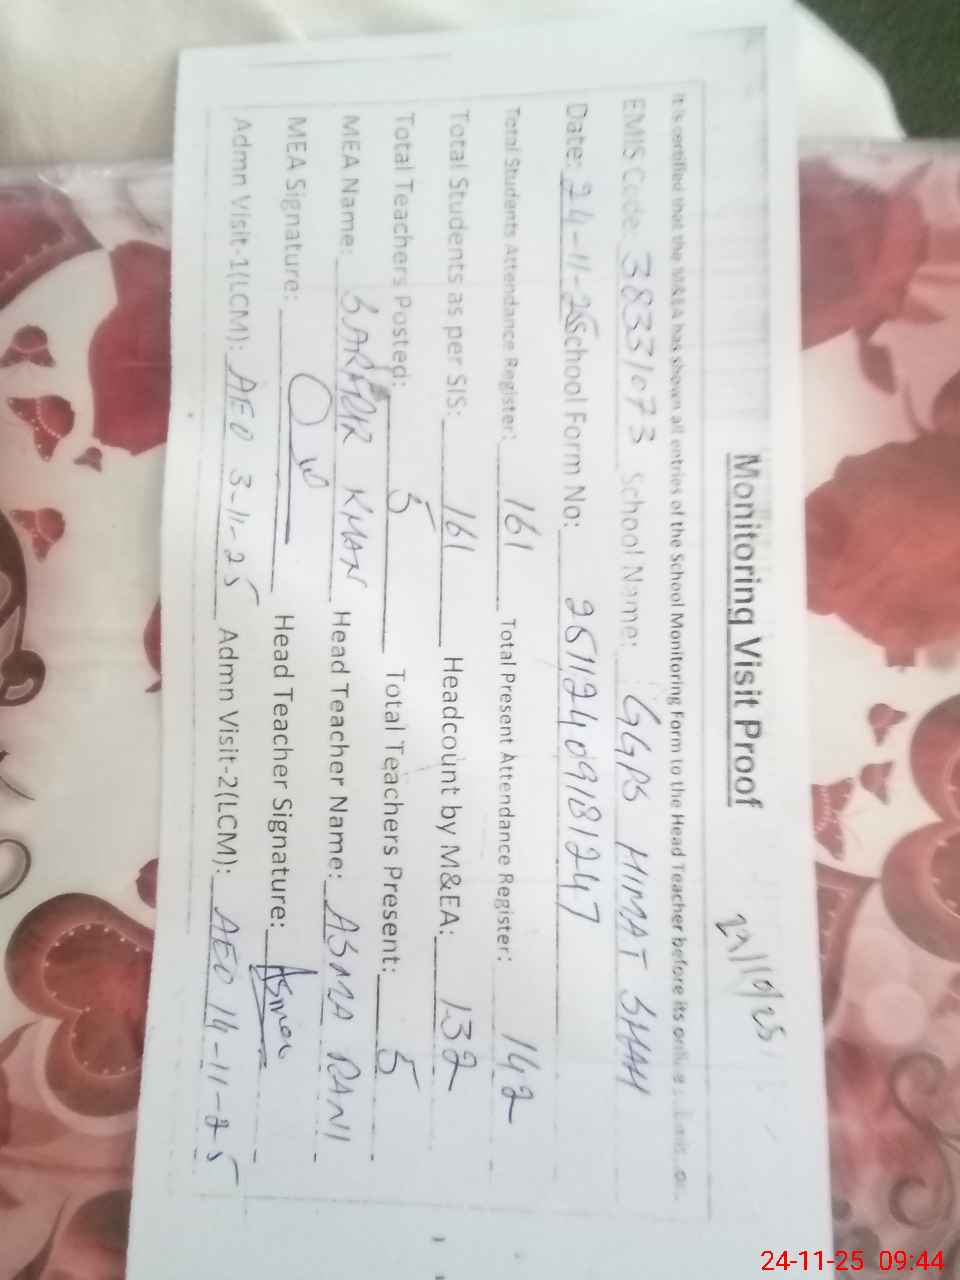 23/10/25
Monitoring Visit Proof
It is certified that the M&EA has shown all entries of the School Monitoring Form to the Head Teacher before its online
EMIS Code: 38331073 School Name: GGPS HIMAT SHAH
Date: 24-11-25 School Form No: 25112409181247
Total Students Attendance Register: 161 Total Present Attendance Register: 142
Total Students as per SIS: 161 Headcount by M&EA: 132
Total Teachers Posted: 5 Total Teachers Present: 5
MEA Name: KHAN Head Teacher Name: ASMA RANI
MEA Signature: Head Teacher Signature: Asma
Admn Visit-1(LCM): AEO 3-11-25 Admn Visit-2(LCM): AEO 14-11-25
24-11-25 09:44